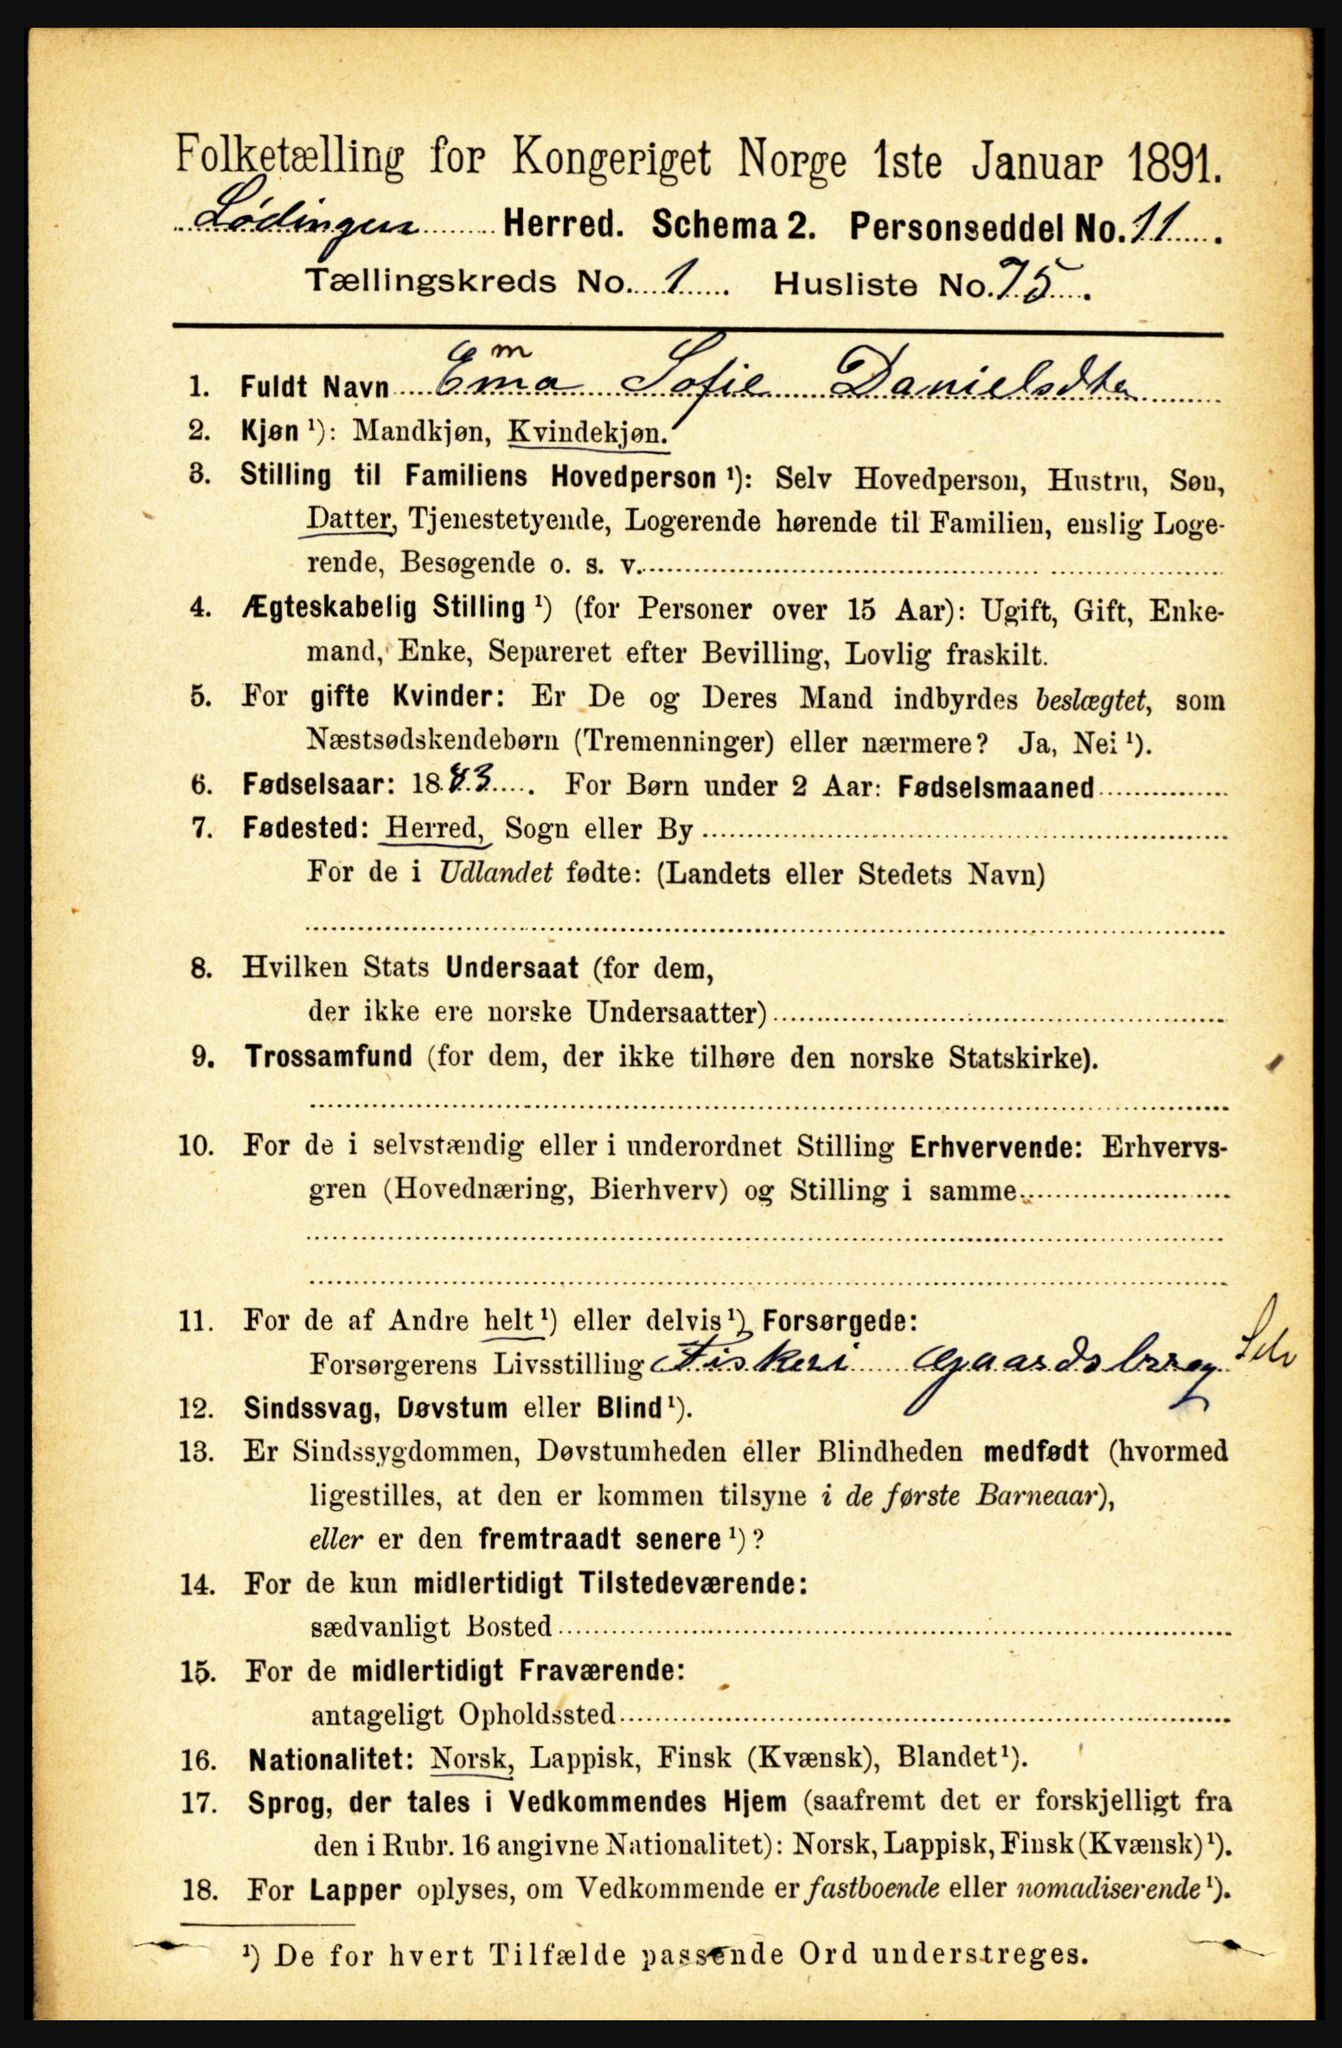 Folketælling for Kongeriget Norge 1ste Januar 1891.
Lødingen Herred. Schema 2. Personseddel No. 11.
Tællingskreds No. 1. Husliste No. 75.
m
1. Fuldt Navn Ema Sofie Danielsdtr
2. Kjøn ¹): Mandkjøn, Kvindekjøn.
3. Stilling til Familiens Hovedperson ¹): Selv Hovedperson, Hustru, Søn,
Datter, Tjenestetyende, Logerende hørende til Familien, enslig Loge-
rende, Besøgende o. s. v.
4. Ægteskabelig Stilling ¹) (for Personer over 15 Aar): Ugift, Gift, Enke-
mand, Enke, Separeret efter Bevilling, Lovlig fraskilt.
5. For gifte Kvinder: Er De og Deres Mand indbyrdes beslægtet, som
Næstsødskendebørn (Tremenninger) eller nærmere? Ja, Nei ¹).
6. Fødselsaar: 1883. For Børn under 2 Aar: Fødselsmaaned
7. Fødested: Herred, Sogn eller By
For de i Udlandet fødte: (Landets eller Stedets Navn)
8. Hvilken Stats Undersaat (for dem,
der ikke ere norske Undersaatter)
9. Trossamfund (for dem, der ikke tilhøre den norske Statskirke).
10. For de i selvstændig eller i underordnet Stilling Erhvervende: Erhvervs-
gren (Hovednæring, Bierhverv) og Stilling i samme
11. For de af Andre helt ¹) eller delvis ¹) Forsørgede:
Forsørgerens Livsstilling Fiskeri Gaardsbrug Selv
12. Sindssvag, Døvstum eller Blind ¹).
13. Er Sindssygdommen, Døvstumheden eller Blindheden medfødt (hvormed
ligestilles, at den er kommen tilsyne i de første Barneaar),
eller er den fremtraadt senere ¹)?
14. For de kun midlertidigt Tilstedeværende:
sædvanligt Bosted
15. For de midlertidigt Fraværende:
antageligt Opholdssted
16. Nationalitet: Norsk, Lappisk, Finsk (Kvænsk), Blandet ¹).
17. Sprog, der tales i Vedkommendes Hjem (saafremt det er forskjelligt fra
den i Rubr. 16 angivne Nationalitet): Norsk, Lappisk, Finsk (Kvænsk) ¹).
18. For Lapper oplyses, om Vedkommende er fastboende eller nomadiserende ¹).
¹) De for hvert Tilfælde passende Ord understreges.